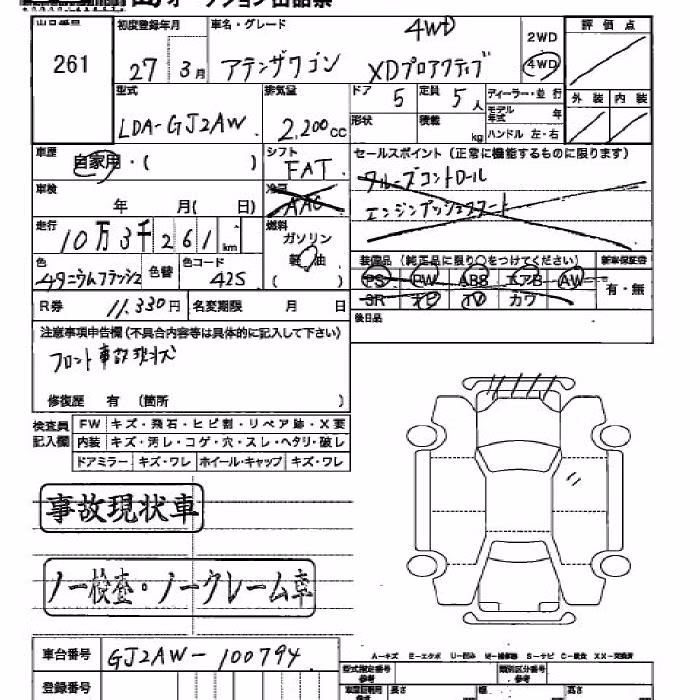 オークション出品票
出品番号 初度登録年月 車名・グレード 4WD 評価点
261 27 3月 アテンザワゴン XDプロアクティブ 2WD 4WD
型式 排気量 ドア 5 定員 5人 ディーラー・並行 外装 内装
LDA-GJ2AW 2,200cc 形状 積載 kg モデル年式 年
ハンドル 左・右
車歴 シフト セールスポイント (正常に機能するものに限ります)
自家用・( ) FAT クルーズコントロール
車検 冷房 エンジンプッシュスタート
年 月( 日) AAC
走行 燃料
10万3千261km ガソリン
軽油
色 色替 色コード ( ) 装備品 (純正品に限り○をつけてください) 新車保証書
メタニウムフラッシュ 42S PS PW ABS エアB AW 有・無
SR ナビ TV カワ
R券 11,330円 名変期限 月 日 後日品
注意事項申告欄 (不具合内容等は具体的に記入して下さい)
フロント事故現状
修復歴 有 (箇所 )
検査員記入欄 FW キズ・飛石・ヒビ割・リペア跡・X要
内装 キズ・汚レ・コゲ・穴・スレ・ヘタリ・破レ
ドアミラー キズ・ワレ ホイール・キャップ キズ・ワレ
事故現状車
ノー検査・ノークレーム車
A-キズ E-エクボ U-凹み W-補修跡 S-サビ C-腐食 XX-交換済
車台番号 GJ2AW-100794 型式指定番号 参考 類別区分番号 参考
登録番号 長さ 幅 高さ